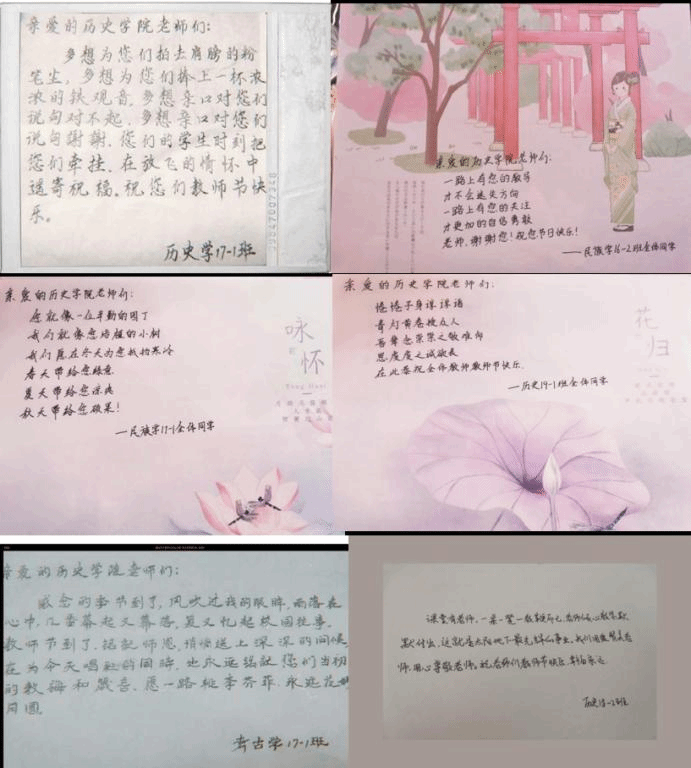 亲爱的历史学院老师们:
多想为您们拍去肩膀的粉
笔尘,多想为您们捧上一杯浓
浓的铁观音,多想亲口对您们
说句对不起,多想亲口对您们
说句谢谢,您们的学生时刻把
您们牵挂,在放飞的情怀中
遥寄祝福,祝您们教师节快
乐。
历史学17-1班
亲爱的历史学院老师们:
一路上有您的教导
才不会迷失方向
一路上有您的关注
才更加的自信勇敢
老师,谢谢您!祝您节日快乐!
——民族学16-2班全体同学
亲爱的历史学院老师们:
您就像一位辛勤的园丁
我们就像您培植的小树
我们愿在冬天为您抵挡寒冷
春天带给您绿意
夏天带给您凉爽
秋天带给您硕果!
—民族学17-1全体同学
咏
怀
Yong Huai
亲爱的历史学院老师们:
惓惓子身谆谆语
青灯黄卷授众人
吾辈念荣荣之敬难仰
思虔虔之诚敬表
在此恭祝全体教师教师节快乐.
—历史19-1班全体同学
花
归
亲爱的历史学院老师们:
感念的季节到了,风吹过我的眼眸,雨落在
心中,几番幕起又幕落,忽又忆起校园往事.
教师节到了,铭记师恩,悄悄送上深深的问候
在为今天唱赞的同时,也永远铭记您们当初
的教诲和箴言.愿一路桃李芬菲,永远花好
月圆。
考古学17-1班
课堂有老师,一桌一凳一教鞭而已,老师倾心教导默
默付出,这就是太阳底下最光辉的事业,我们因您
师,用心尊敬老师,祝老师们教师节快乐,幸福永远.
历史18-2班